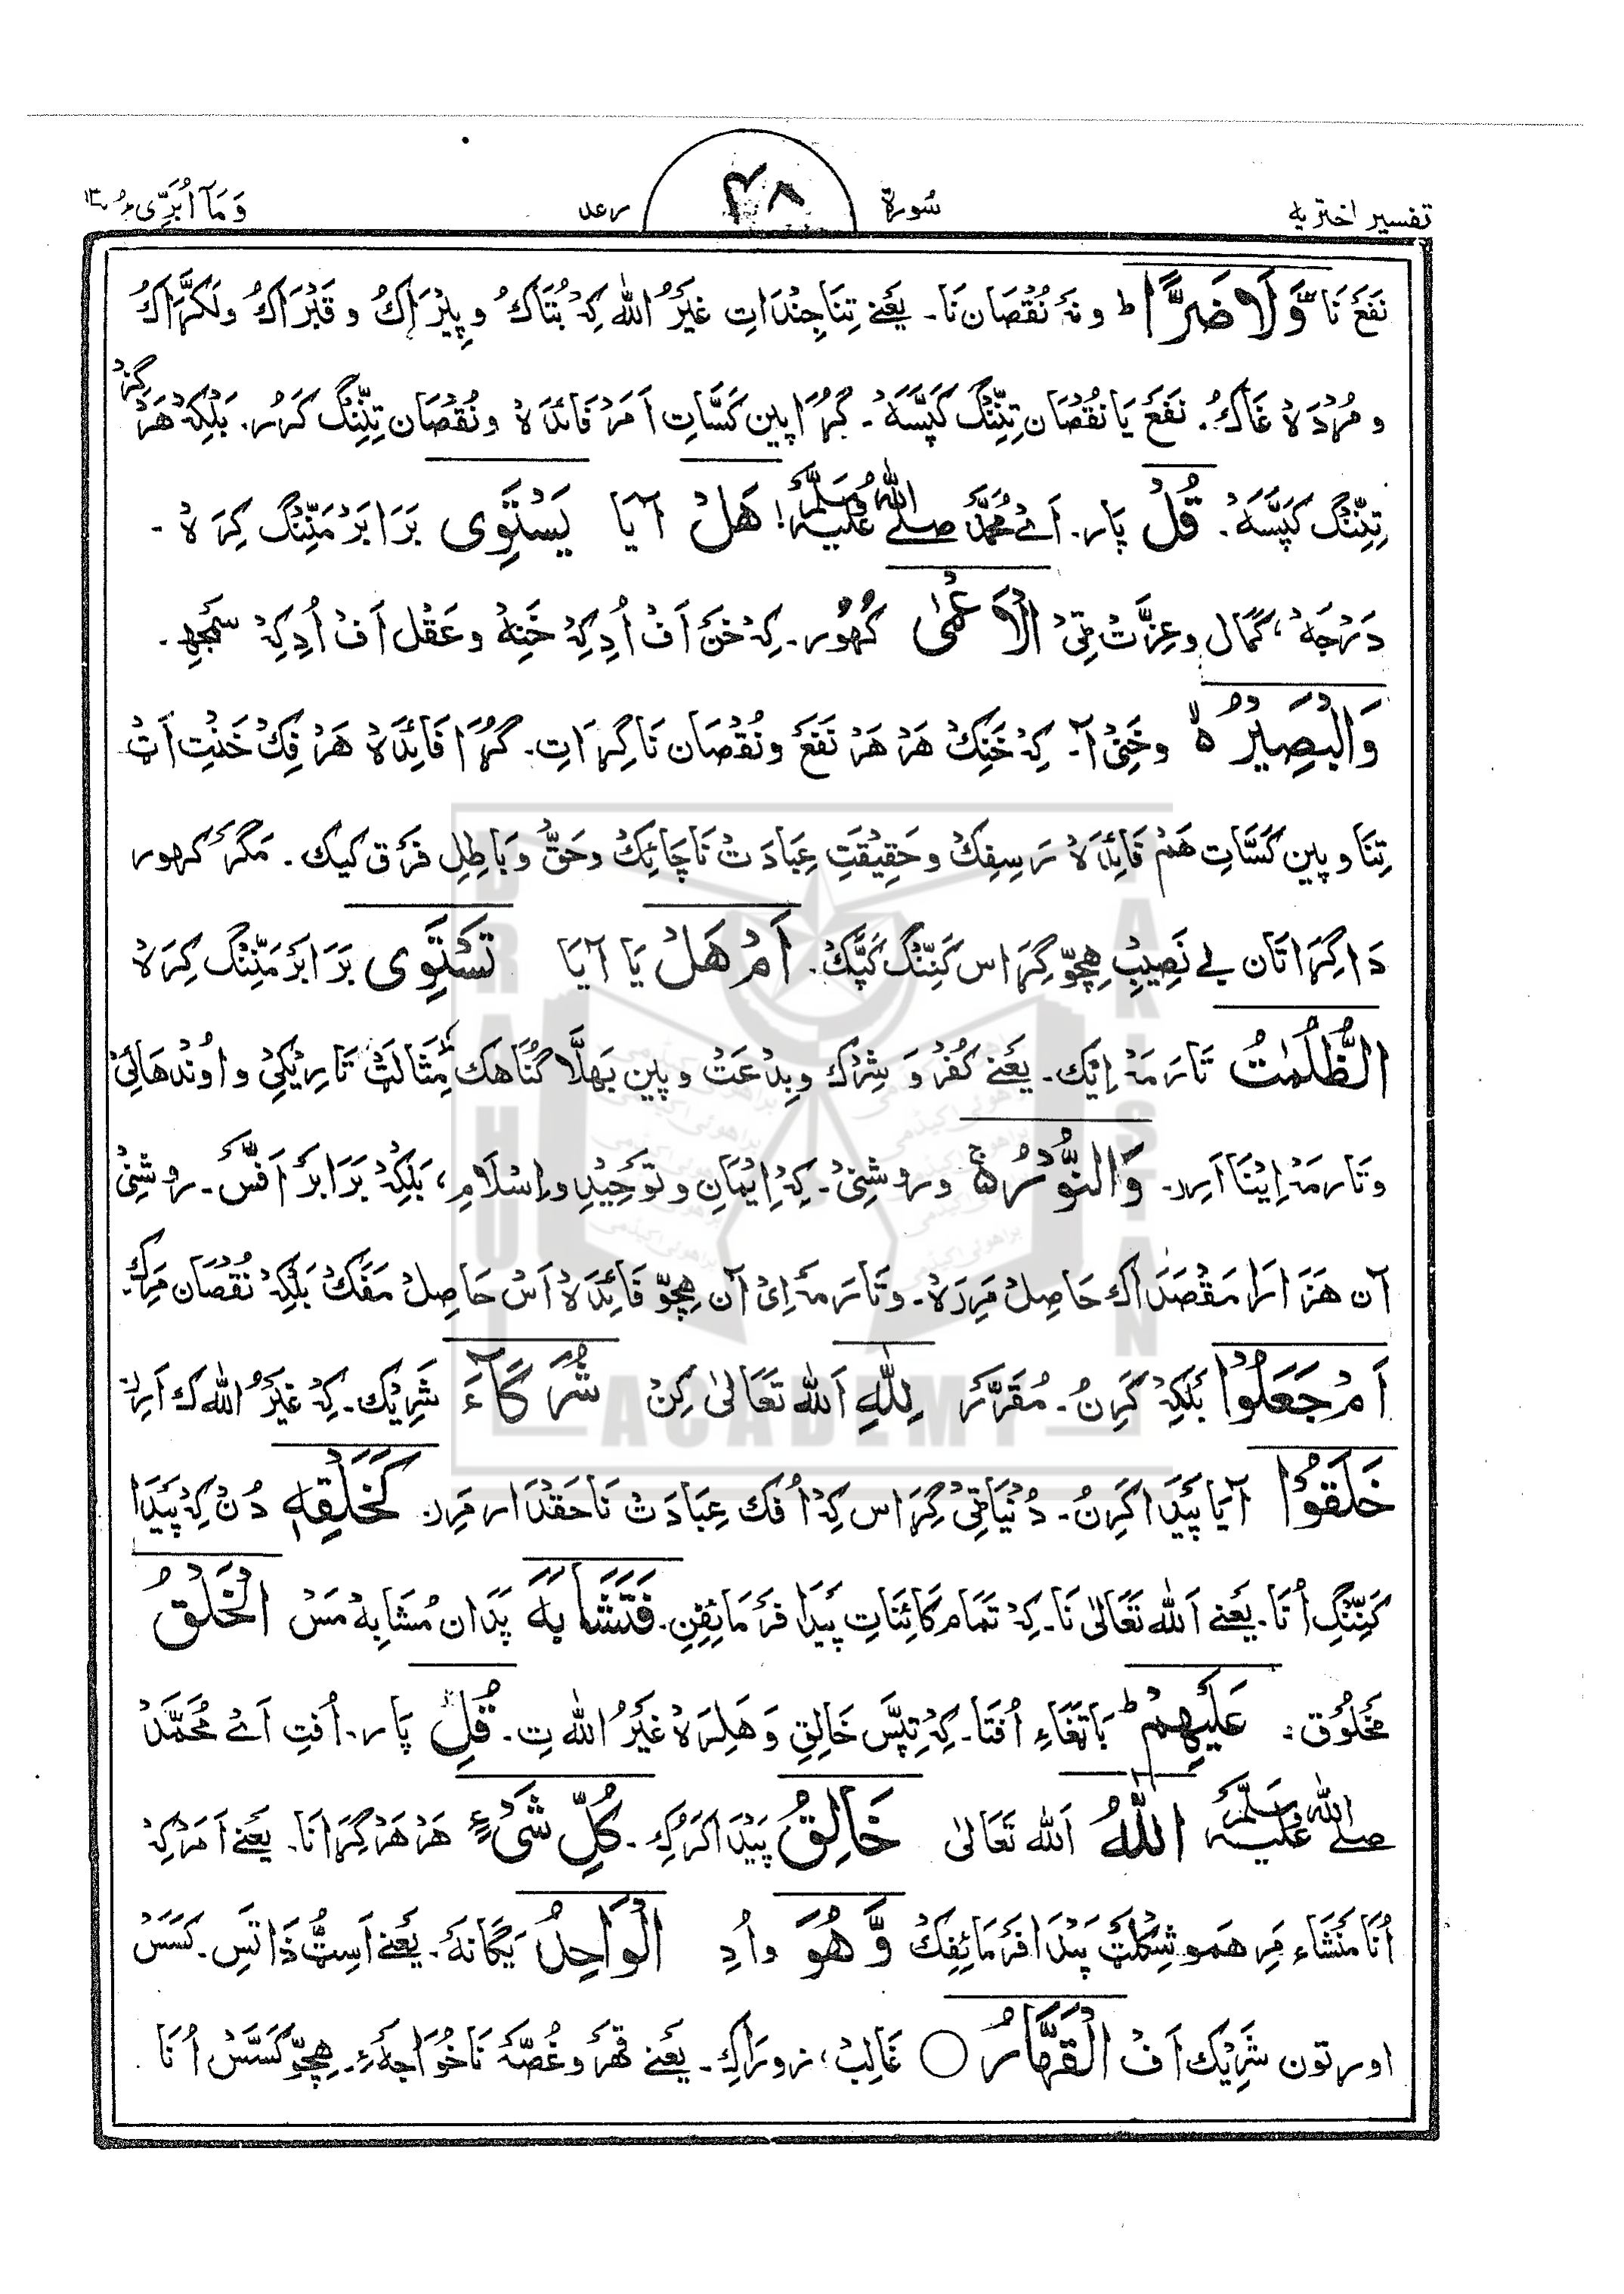 تفسیر اختریہ سُورۃ ۴۸ رعد وَمَآ اُبَرِّیُٔ ۱۳
نَفَعَ نَا وَّلَا ضَرًّا ؕ و نَہ نُقْصَان نَا۔ یَعْنے تِنَا جِنْدَاتِ غَیْرُ اللّٰہ کِہ بُتَاکْ و پِیْرَاکْ و قَبْرَاکْ و لَکَّرَاکْ
و مُرْدَہ غَاکْ۔ نَفَعَ یَا نُقْصَان تِنِّنِگ کَپَّسَہ۔ گُرَا پِین کَسَّاتِ اَمَرْ فَائِدَہ و نُقْصَان تِنِّنِگ کَرَر۔ بَلْکِہ ھَرْگِزْ
تِنِّنِگ کَپَّسَہ۔ قُلْ پَار۔ اَےْ مُحَمَّدْ صلے اللّٰہ علیہ وسلم! ھَلْ آیَا یَسْتَوِی بَرَابَرْ مَنِّنِگ کِرَہ۔
دَرْجَہ، کَمَال و عِزَّتْ ٹِیْ الْاَعْمٰی کُھْور۔ کِہ خَنْ اَفْ اُدِکِہ خَنِہ و عَقْل اَفْ اُدِکِہ سَمْجھِ۔
وَالْبَصِیْرُ ۙ و خَنِیْ آ۔ کِہ خَنِکْ ھَرْ ھَرْ نَفَعَ و نُقْصَان نَا گِرَاتِ۔ گُرَا فَائِدَہ ھَرْفِکْ خَنْتِ اَتْ
تِنَا و پِین کَسَّاتِ ھَمْ فَائِدَہ رَسِفِکْ و حَقِیْقَتِ عِبَادَتْ نَا چَائِکْ و حَقّ و بَاطِلِ فَرْق کیک۔ مَگَرْ کھور
دَا گِرَاتَان بے نَصِیْبِ ھِچُّو گِرَاس کَنِّنِگ کَپَّکْ۔ اَمْ ھَلْ یَا آیَا تَسْتَوِی بَرَابَرْ مَنِّنِگ کِرَہ
الظُّلُمٰتُ تَارَمَہ اِیْک۔ یَعْنے کُفْر وَ شِرْک و بِدْعَتْ و پِین بَھلَّا گُنَاھک مِثَالَٹْ تَارِیْکِیْ و اُونْدھَائِیْ
و تَارمَہ اِیْنَا اَرِر۔ وَالنُّوْرُ ۚ و رُوشْنِیْ۔ کِہ اِیْمَانِ و تَوْحِیْدِ و اِسْلَامِ، بَلْکِہ بَرَابَرْ اَفَّسْ۔ رُوشْنِیْ
آن ھَزَارَا مَقْصَدَاک حَاصِلْ مَرِرَہ۔ و تَارَمَہ اِیْ آن ھِچُّو فَائِدَہ اَسْ حَاصِلْ مَفَکْ بَلْکِہ نُقْصَان مَرِک۔
اَمْ جَعَلُوْا بَلْکِہ کَرِنُ۔ مُقَرَّر لِلّٰہِ اَللّٰہ تَعَالٰی کِنْ شُرَکَآءَ شَرِیْک۔ کِہ غَیْرُ اللّٰہ ک اَرِر
خَلَقُوْا آیَا پَیْدَا کَرِنُ۔ دُنْیَا ٹِیْ گِرَاس کِہ اُفْک عِبَادَتْ نَا حَقْدَار مَرِر۔ کَخَلْقِہٖ دُنْ کِہ پَیْدَا
کَنِّنِگ اُنَا۔ یَعْنے اَللّٰہ تَعَالٰی نَا۔ کِہ تَمَام کَائِنَاتِ پَیْدَا فَرْمَائِفِنِ۔ فَتَشَابَہَ پَدَان مُشَابِہ مَسْ الْخَلْقُ
مَخْلُوْق: عَلَیْھِمْ ؕ بَاتْغَاءِ اُفْتَا۔ کِہ تِپَّسْ خَالِقِ وَ ھَلِرَہ غَیْرُ اللّٰہ تِ۔ قُلِ پَار۔ اُفْتِ اَےْ مُحَمَّدْ
صلے اللّٰہ علیہ وسلم اللّٰہُ اَللّٰہ تَعَالٰی خَالِقُ پَیْدَا کَرُکِ۔ کُلِّ شَیْءٍ ھَرْ ھَرْ گِرَانَا۔ یَعْنے اَمَرْکِہ
اُنَا مَنْشَاء مَرِ ھَمو شِکْلَٹ پَیْدَا فَرْمَائِفِکْ وَّ ھُوَ و اُدِ الْوَاحِدُ یَگَانَہ۔ یَعْنے اَسِٹُّ ذَاتَسِ۔ کَسَّسْ
اورتون شَرِیْک اَفْ الْقَھَّارُ ○ غَالِبْ؛ زوراکِ۔ یَعْنے قَھَرْ و غُصَّہ نَا خُوَاجَہ ءِ۔ ھِچُّو کَسَّسْ اُنَا
BRAHUI
ACADEMY
PAKISTAN